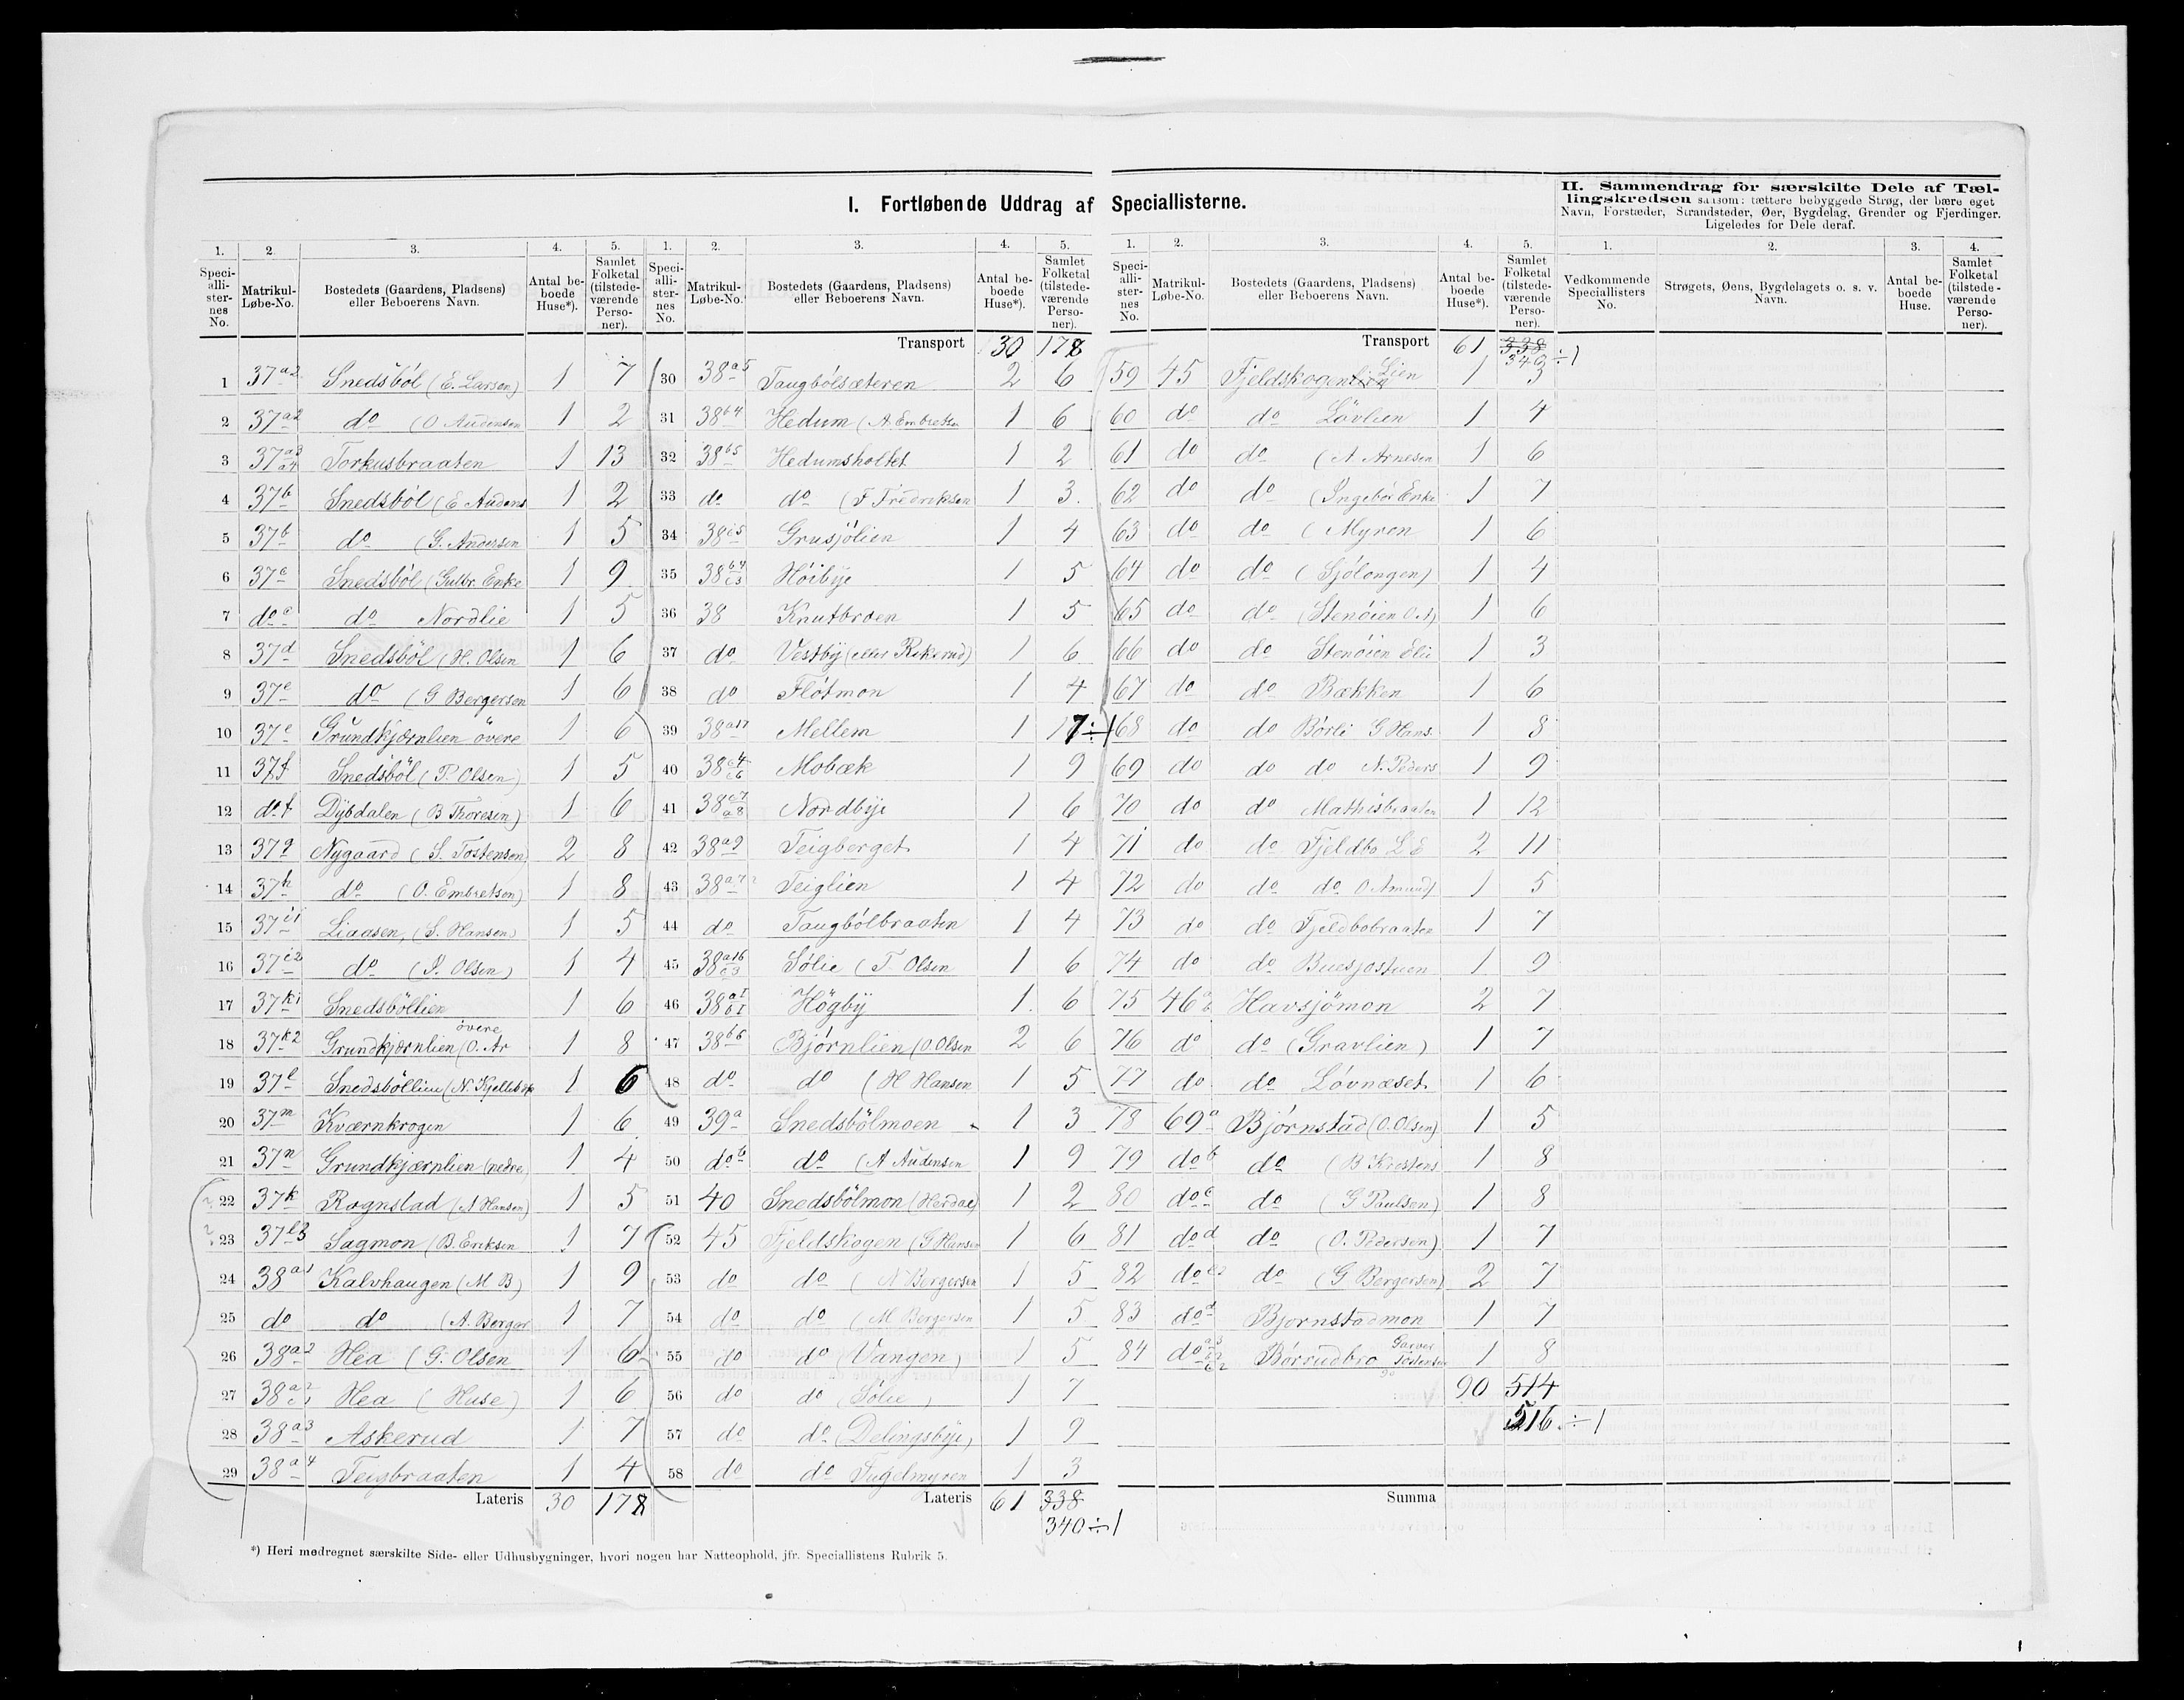 I. Fortløbende Uddrag af Speciallisterne.
II. Sammendrag for særskilte Dele af Tæl-
lingskredsen saasom: tættere bebyggede Strøg, der bære eget
Navn, Forstæder, Strandsteder, Øer, Bygdelag, Grender og Fjerdinger.
Ligeledes for Dele deraf.
1. 2. 3. 4. 5.
Speciallisternes No. Matrikul-Løbe-No. Bostedets (Gaardens, Pladsens) eller Beboerens Navn. Antal beboede Huse*). Samlet Folketal (tilstedeværende Personer).
1 37a2 Snedsböl (E. Larsen) 1 7
2 37a2 do (O Audensen 1 2
3 37a3 a4 Torkusbraaten 1 13
4 37b Snedsböl (E Audens 1 2
5 37b do (G. Andersen 1 5
6 37c Snedsböl (Gulbr. Enke 1 9
7 do c do Nordlie 1 5
8 37d Snedsböl (H. Olsen 1 6
9 37e do (G Bergersen 1 6
10 37e Grundkjærnlien övere 1 6
11 37f Snedsböl (P. Olsen) 1 5
12 do f Dybdalen (B Thoresen) 1 6
13 37g Nygaard (S. Tostensen) 2 8
14 37h do (O. Embretsen) 1 8
15 37i1 Liaasen, (S. Hansen) 1 5
16 37i2 do (P. Olsen) 1 4
17 37k1 Snedsböllien 1 6
18 37k2 Grundkjærnlien övere (O. Ar 1 8
19 37l Snedsböllien (N. 1 6
20 37m Kværnkrogen 1 6
21 37n Grundkjærnlien (nedre) 1 4
22 37k Rognstad (A Hansen) 1 5
23 37l3 Sagmon (B. Eriksen 1 7
24 38a1 Kalvhaugen (M B) 1 9
25 do do (A. Berger 1 7
26 38a2 Hea (G. Olsen 1 6
27 38a2 c1 Hea (Huse) 1 6
28 38a3 Askerud 1 7
29 38a4 Teigbraaten 1 4
Lateris 30 178
1. 2. 3. 4. 5.
Speciallisternes No. Matrikul-Løbe-No. Bostedets (Gaardens, Pladsens) eller Beboerens Navn. Antal beboede Huse*). Samlet Folketal (tilstedeværende Personer).
Transport 30 178
30 38a5 Taugbölsæteren 2 6
31 38b4 Hedum (A. Embretsen 1 6
32 38b5 Hedumsholtet 1 2
33 do do (F Fredreksen 1 3
34 38c5 Grusjölien 1 4
35 38b4 c3 Höibye 1 5
36 38 Knutbroen 1 5
37 do Vestby (eller Rikerud) 1 6
38 do Flötmon 1 4
39 38a17 Mellem 1 17÷1
40 38c4 c6 Mobæk 1 9
41 38c7 a8 Nordbye 1 6
42 38a9 Teigberget 1 4
43 38a7 Teiglien 1 4
44 do Taugbölbraaten 1 4
45 38a16 c3 Sölie (T. Olsen 1 6
46 38a1 b1 Högby 1 6
47 38b6 Björnlien (O. Olsen 2 6
48 do do (H Hansen 1 5
49 39a Snedsbölmoen 1 3
50 do b do (A Audensen 1 9
51 40 Snedsbölmon (Herdal) 1 2
52 45 Fjeldskogen (G Hansen 1 6
53 do do (N Bergersen 1 5
54 do do (M Bergersen 1 5
55 do do (Vangen) 1 5
56 do do (Sölie) 1 7
57 do do (Delingsbye) 1 9
58 do do Sugelmyren 1 3
Lateris 61 338
340÷1
1. 2. 3. 4. 5.
Speciallisternes No. Matrikul-Løbe-No. Bostedets (Gaardens, Pladsens) eller Beboerens Navn. Antal beboede Huse*). Samlet Folketal (tilstedeværende Personer).
Transport 61 338
340÷1
59 45 Fjeldskogen Lien 1 3
60 do do Lövlien 1 4
61 do do (A Arnesen 1 6
62 do do (Ingebör Enke 1 7
63 do do (Myren 1 6
64 do do (Sjölongen) 1 4
65 do do (Stenöien O. A) 1 6
66 do do Stenöien Elie 1 3
67 do do Bækken 1 6
68 do do Börli G Hans. 1 8
69 do do do N. Peders 1 9
70 do do Mathisbraaten 1 12
71 do do Fjeldbo L E 2 11
72 do do do O Amund) 1 5
73 do do Fjeldbobraaten 1 7
74 do do Buesjostuen 1 9
75 46a b Havsjömon 2 7
76 do do (Gravlien) 1 7
77 do do Lövnæset 1 6
78 69a Björnstad (O. Olsen) 1 5
79 do b do (B Krestens 1 8
80 do c do (G Paulsen) 1 8
81 do d do (O. Pedersen) 1 7
82 do do (G Bergersen) 2 7
83 do d Bjornstadmon 1 7
84 do Börrudbro Tostensen 1 8
90 514
516÷1
Summa
1. 2. 3. 4.
Vedkommende Speciallisters No. Strøgets, Øens, Bygdelagets o. s. v. Navn. Antal beboede Huse. Samlet Folketal (tilstedeværende Personer).
*) Heri medregnet særskilte Side- eller Udhusbygninger, hvori nogen har Natteophold, jfr. Speciallistens Rubrik 5.